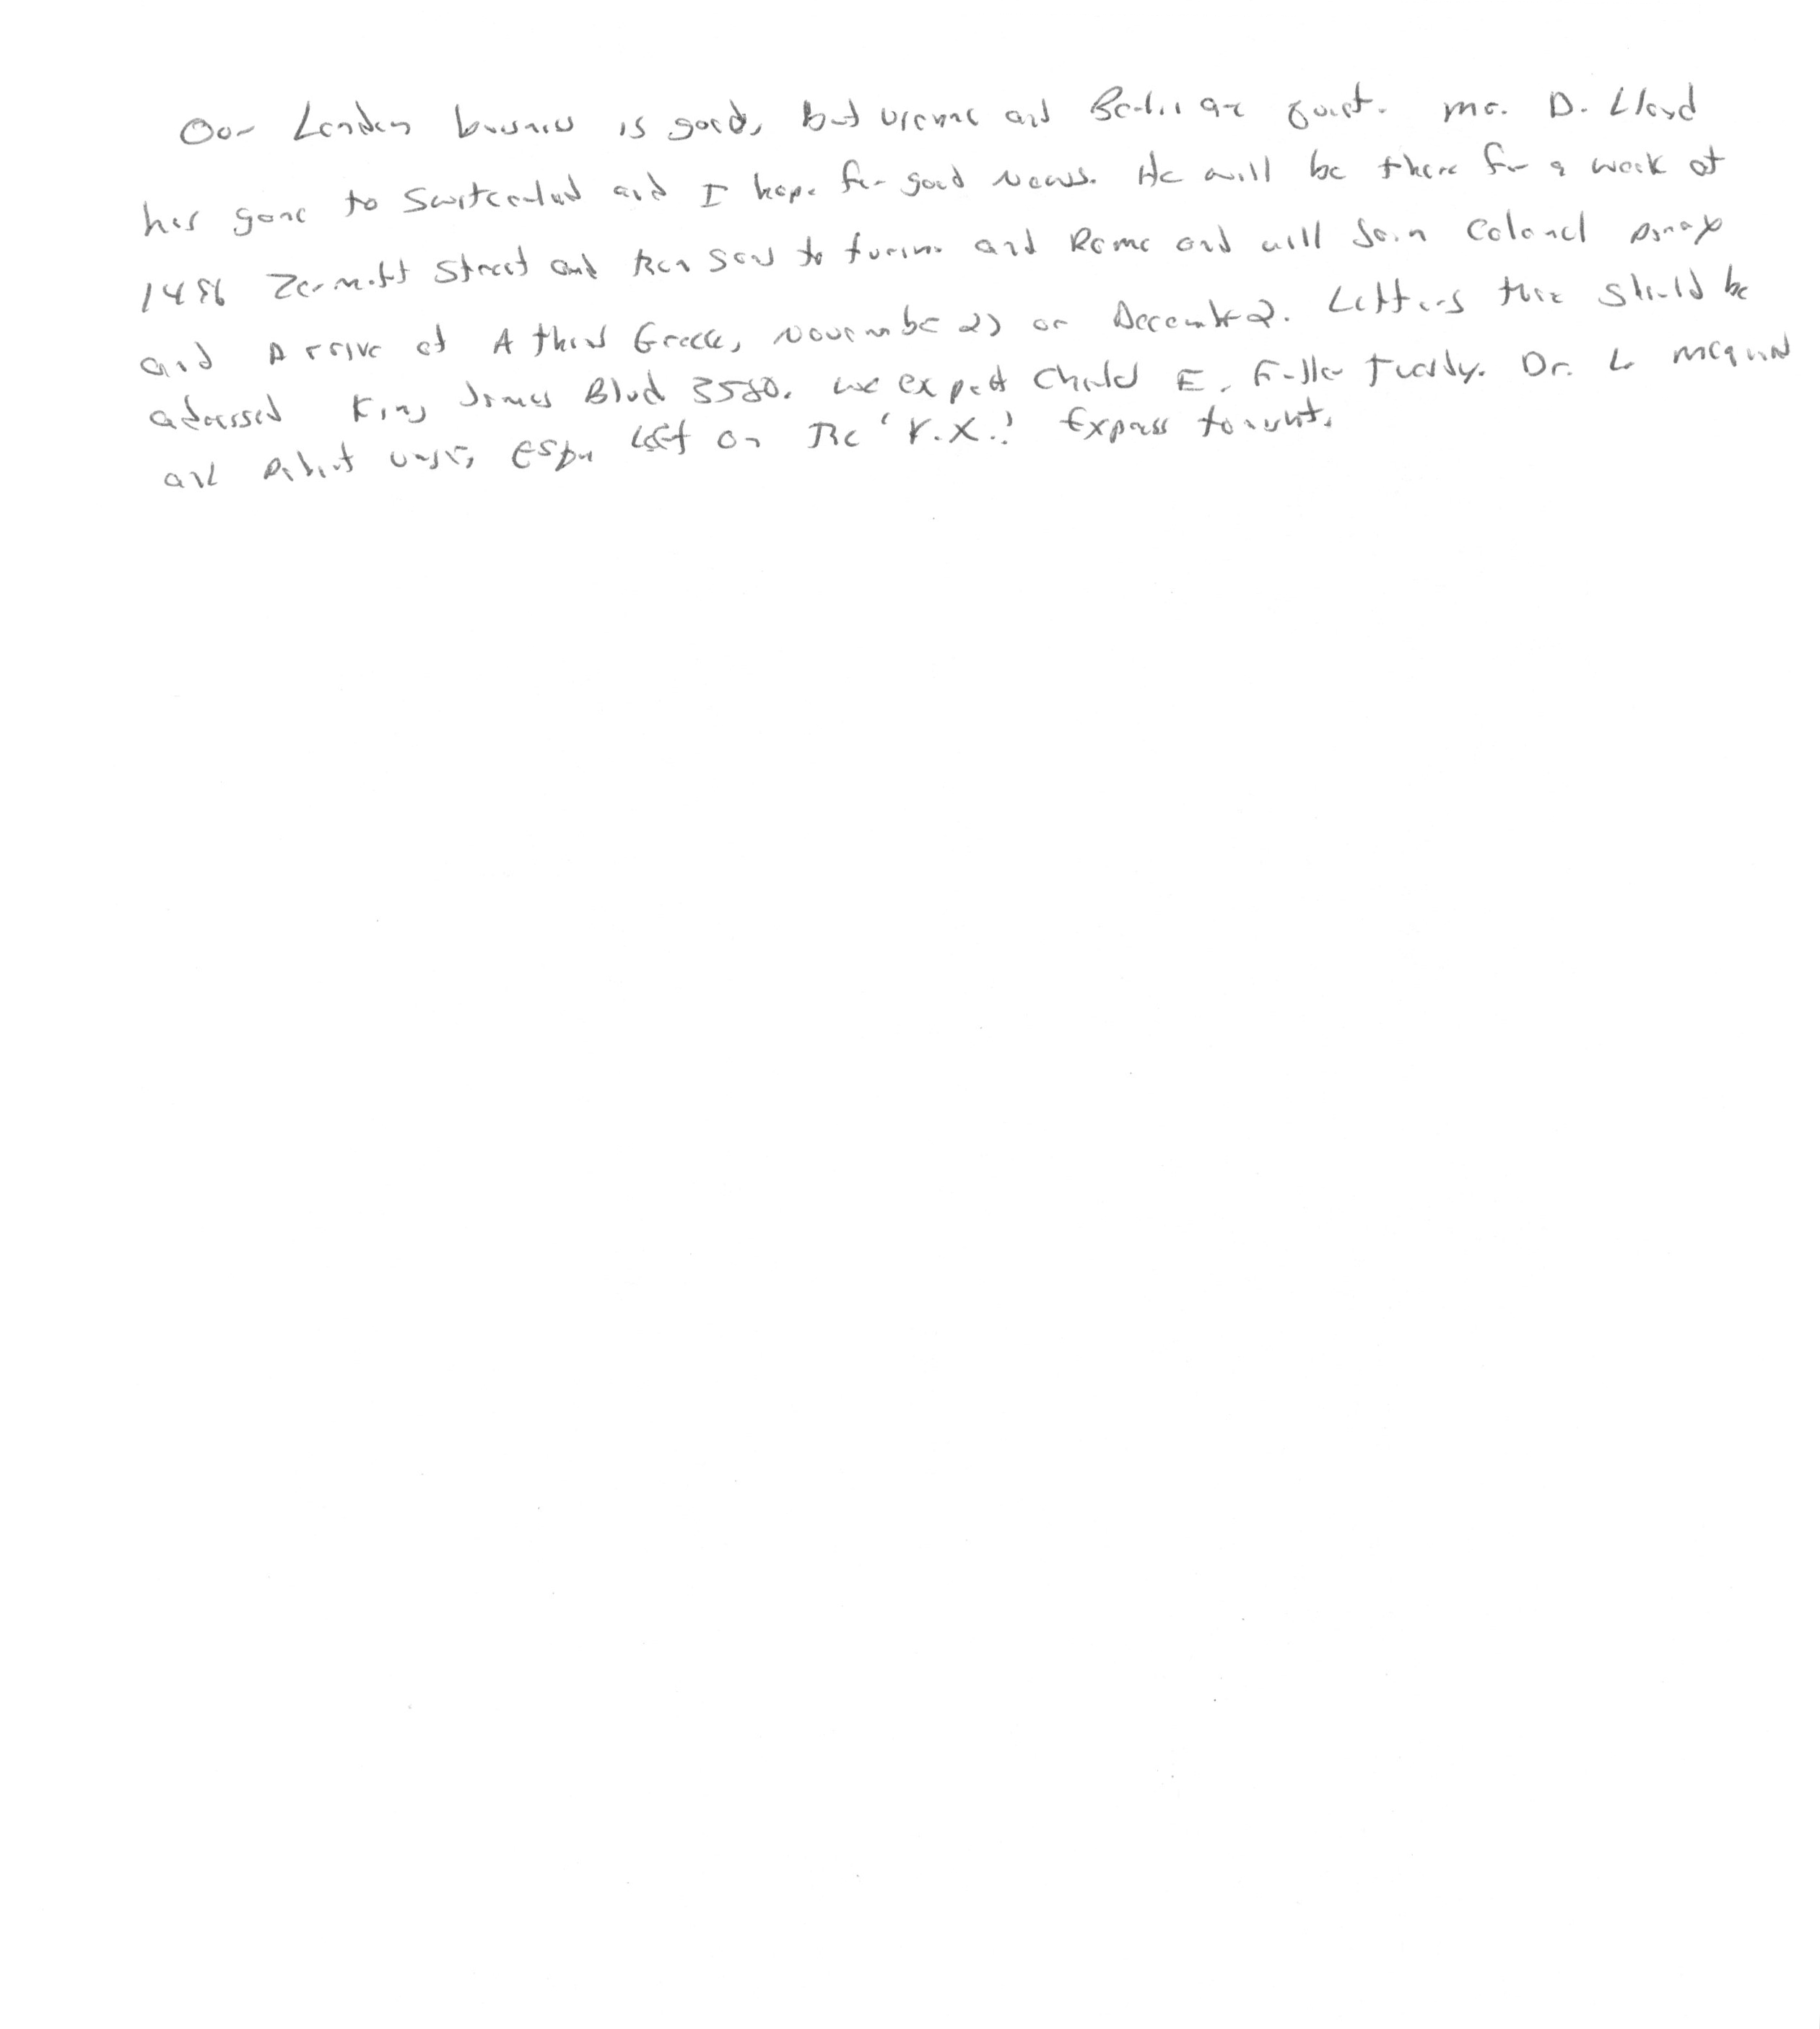 Our London business is good, but Vienna and Berlin are quiet. Mr. D. Lloyd
has gone to Switzerland and I hope for good news. He will be there for a week at
1496 Zermott Street and then goes to Turin and Rome and will join Colonel
and Arrive at Athens Greece, November 27 or December 2. Letters there should be
addressed King James Blvd 3580. We expect Charles E. Fuller Tuesday. Dr. L McQuaid
and Robert Unger, Esqu left on The 'Y.X.' Express tonight.